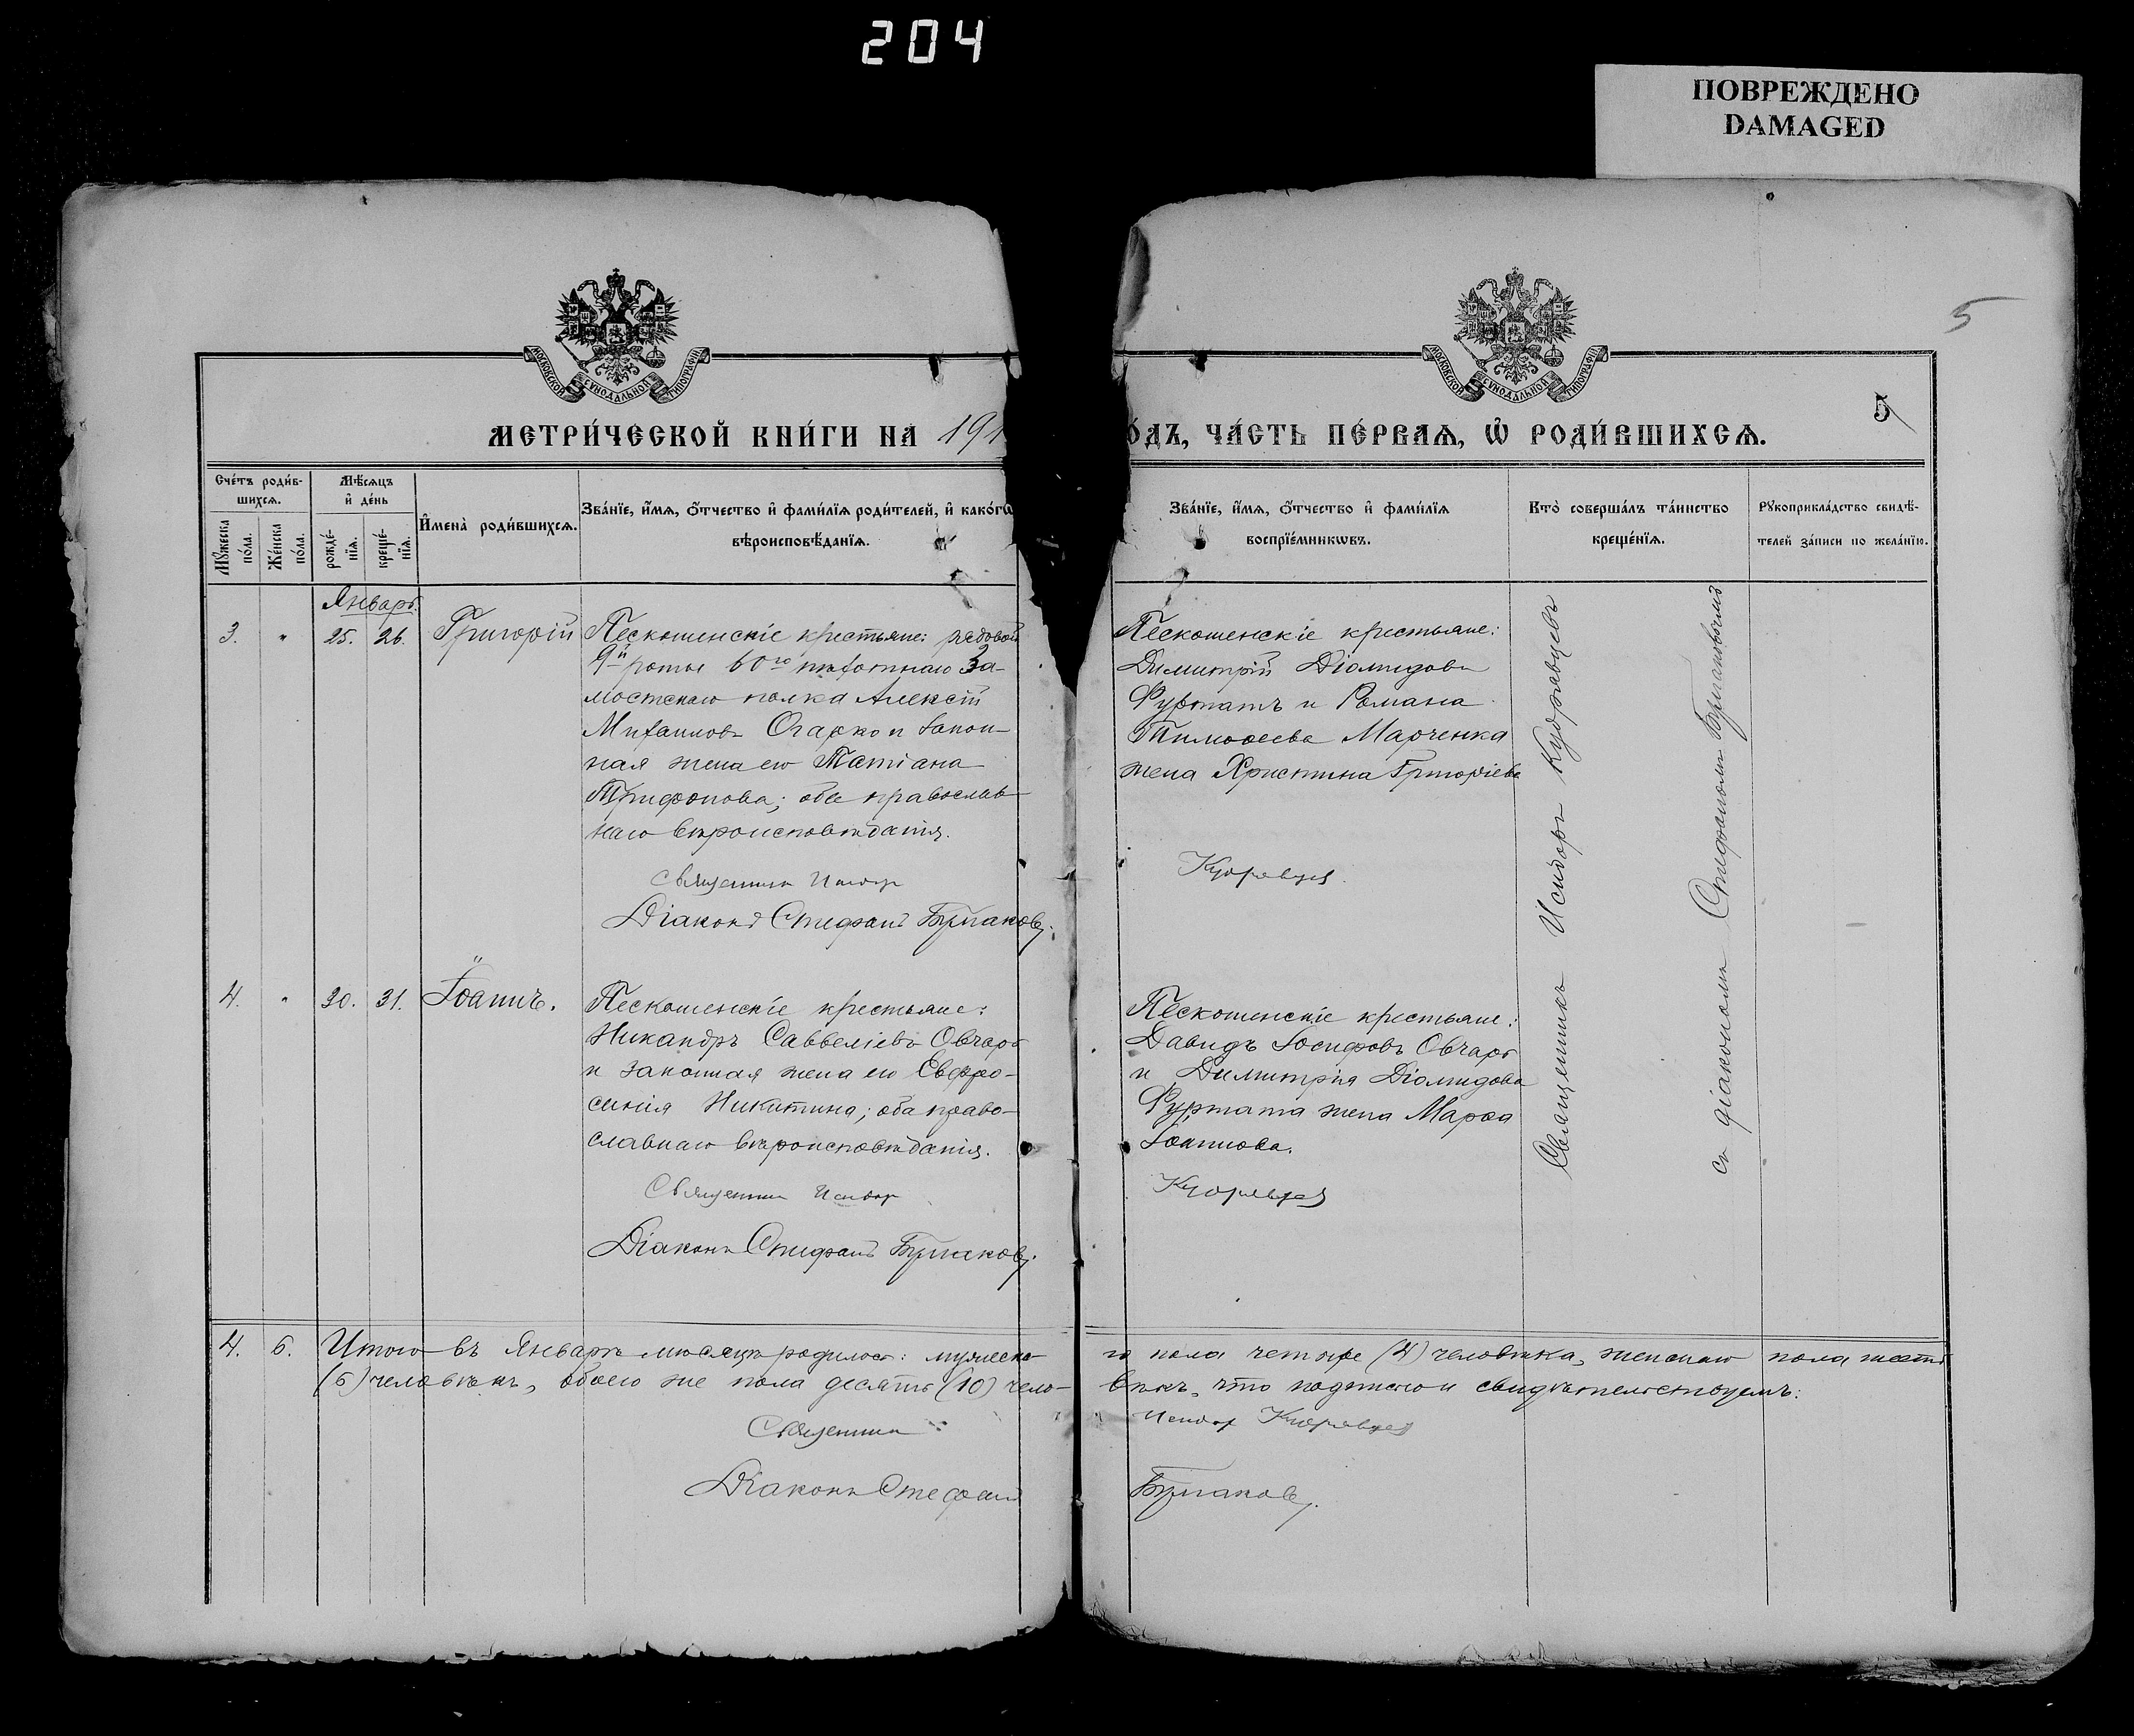 204
ПОВРЕЖДЕНО
DAMAGED
5
МОСКОВСКОЙ СУНОДАЛЬНОЙ ТИПОГРАФІИ
МОСКОВСКОЙ СУНОДАЛЬНОЙ ТИПОГРАФІИ
5
МЕТРИ́ЧЕСКОЙ КНИ́ГИ НА 191
О́ДЪ, ЧА́СТЬ ПЕ́РВАѦ, Ѡ҆ РОДИ́ВШИХСѦ.
Сче́тъ роди́в-
шихсѧ.
Мꙋ́жеска
по́ла.
Же́нска
по́ла.
Мѣ́сѧцъ
и҆ де́нь
рожде́-
нїѧ.
креще́-
нїѧ.
И҆мена̀ роди́вшихсѧ.
Зва́нїе, и҆́мѧ, ѻ҆́тчество и҆ фами́лїѧ роди́телей, и҆ како́гѡ
вѣроисповѣ́данїѧ.
Зва́нїе, и҆́мѧ, ѻ҆́тчество и҆ фами́лїѧ
воспрїе́мникѡвъ.
Кто̀ соверша́лъ та́инство
креще́нїѧ.
Рꙋкоприкла́дство свидѣ́-
телей за́писи по жела́нїю.
Январь.
3. " 25. 26. Григорій
Пескошенскіе крестьяне: рядовой
9й роты 60го пѣхотнаго За-
мостскаго полка Алексій
Михаиловъ Огарко и закон-
ная жена его Татіана
Трифонова; обе православ-
наго вѣроисповѣданія.
Священник Исидор
Діаконъ Стефанъ Булгаковъ.
Пескошенскіе крестьяне:
Димитрій Діомидовъ
Фурматъ и Романа
Тимоѳеева Марченка
жена Христина Григоріева
Кудрявцев
4. " 30. 31. Іоаннъ.
Пескошенскіе крестьяне:
Никандръ Саввеліевъ Овчаръ
и законная жена его Евфро-
синія Никитина; оба право-
славнаго вѣроисповѣданія.
Священник Исидор
Діаконъ Стефанъ Булгаковъ.
Пескошенскіе крестьяне:
Давидъ Іосифовъ Овчаръ
и Димитрія Діомидова
Фурмата жена Марѳа
Іоаннова.
Кудрявцев
Священникъ Исидоръ Кудрявцевъ
съ діакономъ Стефаномъ Булгаковымъ
4. 6. Итого въ Январѣ мѣсяцѣ родилось: мужеска-
го пола четыре (4) человѣка, женскаго пола шесть
(6) человѣкъ, обоего же пола десять (10) чело-
вѣкъ, что подписью и свидѣтельствуемъ:
Священник
Исидор Кудрявцев
Діаконъ Стефанъ
Булгаковъ.